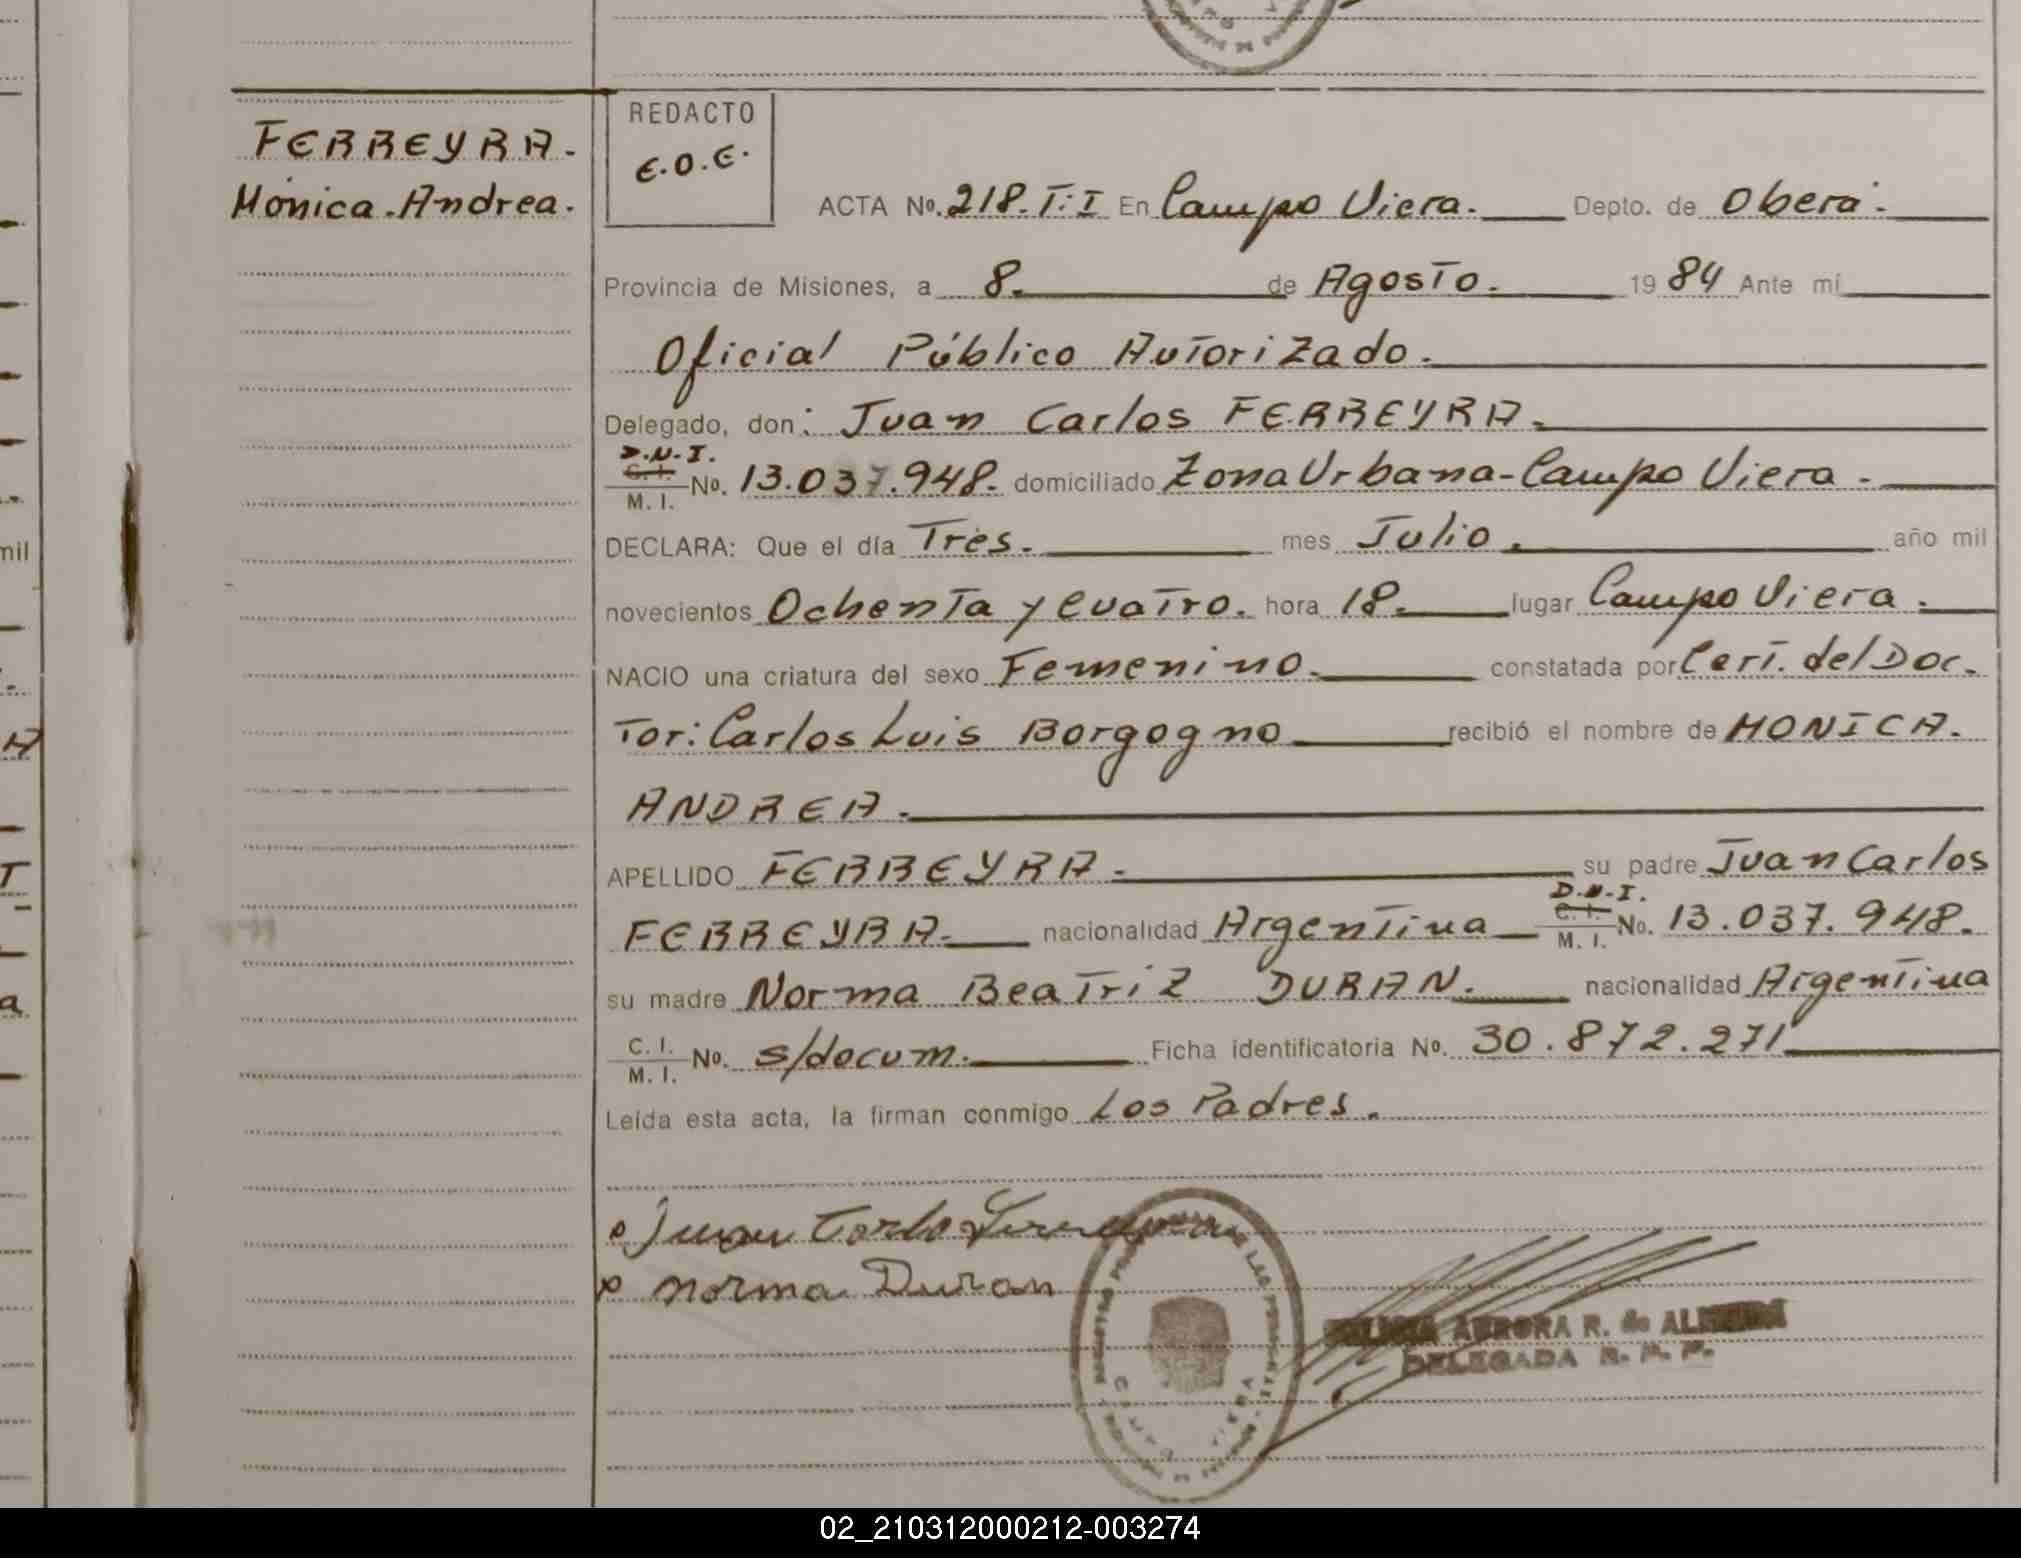 FERREYRA.
Mónica.Andrea.
REDACTO
E.O.E.
ACTA No. 218.T:I En Campo Viera. Depto. de Oberá.
Provincia de Misiones, a 8. de Agosto. 1984 Ante mí
Oficial Público Autorizado.
Delegado, don: Juan Carlos FERREYRA.
D.N.I.
C. I.
M. I. No. 13.037.948. domiciliado Zona Urbana-Campo Viera.
DECLARA: Que el día Tres. mes Julio. año mil
novecientos Ochenta y Cuatro. hora 18. lugar Campo Viera.
NACIO una criatura del sexo Femenino. constatada por Cert. del Doc.
Tor: Carlos Luis Borgogno recibió el nombre de MONICA.
ANDREA.
APELLIDO FERREYRA. su padre Juan Carlos
D.N.I.
FERREYRA. nacionalidad Argentina C. I. M. I. No. 13.037.948.
su madre Norma Beatriz DURAN. nacionalidad Argentina
C. I. M. I. No. s/docum. Ficha identificatoria No. 30.872.271
Leída esta acta, la firman conmigo Los Padres.
Juan Carlo Ferreyra
norma Duran
AURORA R. de
DELEGADA R. P. P.
CAMPO VIERA
mil
02_210312000212-003274